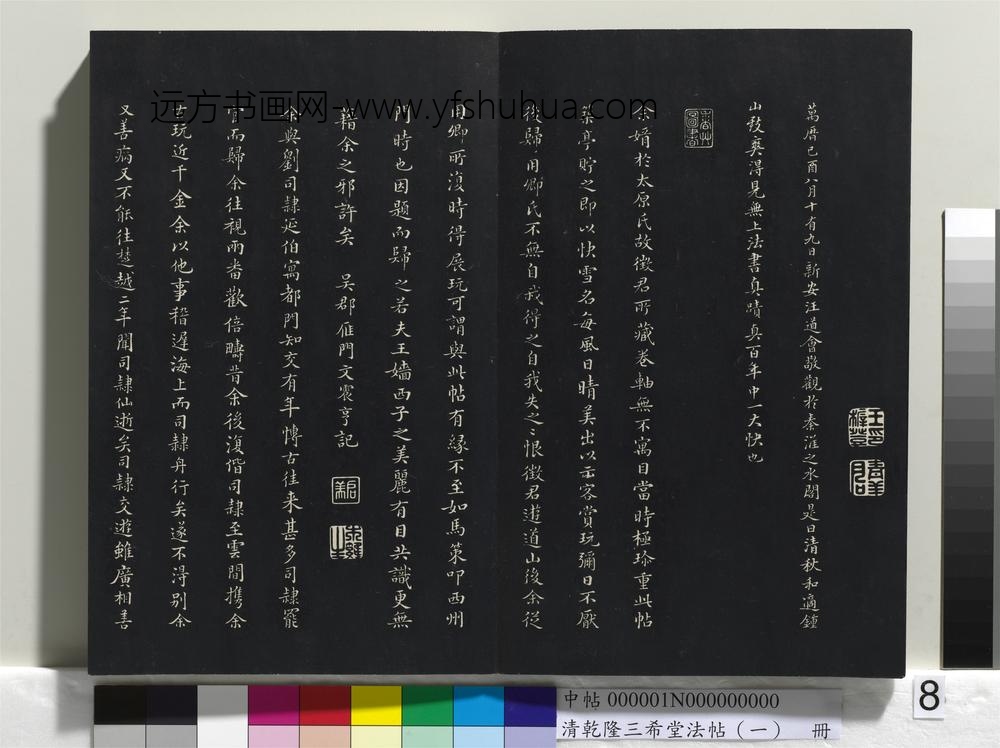 萬曆己酉八月十有九日新安汪道會敬觀於秦淮之水閣是日清秋和適鍾
山發爽得見無上法書真蹟真百年中一大快也
余婿於太原氏故徵君所藏卷軸無不寓目當時極珍重此帖
築亭貯之即以快雪名每風日晴美出以示客賞玩彌日不厭
後歸用卿氏不無自我得之自我失之之恨徵君遊道山後余從
用卿所復時得展玩可謂與此帖有緣不至如馬策叩西州
門時也因題而歸之若夫王嬙西子之美麗有目共識更無
藉余之邪許矣 吳郡雁門文震亨記
余與劉司隸延伯寓都門知交有年博古往來甚多司隸罷
官而歸余往視兩番歡倍疇昔余後復偕司隸至雲間攜余
古玩近千金余以他事稽遲海上而司隸舟行矣遂不得別余
又善病又不能往楚越二年聞司隸仙逝矣司隸交遊雖廣相善
远方书画网-www.yfshuhua.com
中帖 000001N000000000
清乾隆三希堂法帖（一） 冊
8